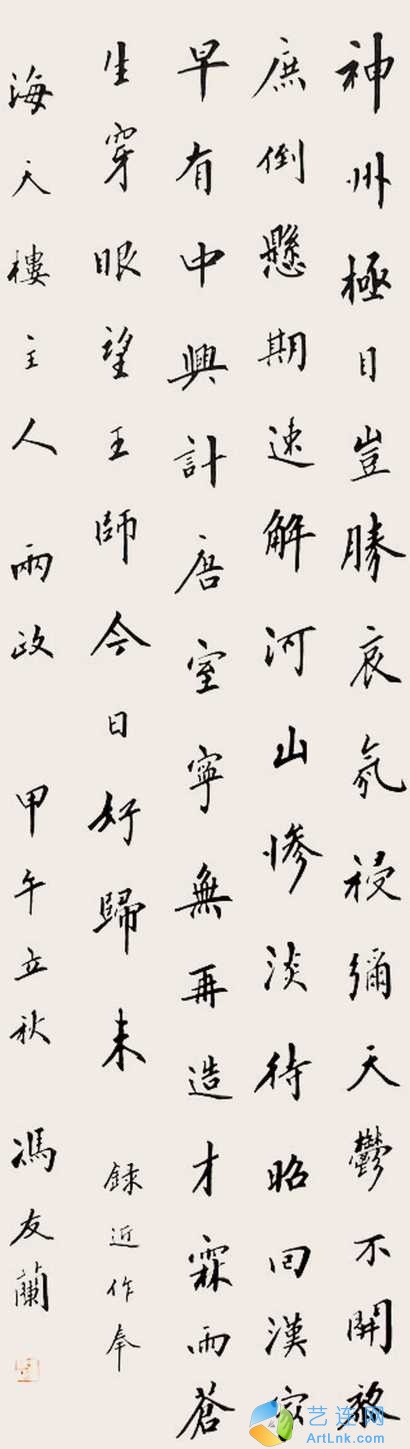 神州極目豈勝哀氛祲彌天鬱不開黎
庶倒懸期速解河山慘淡待昭回漢家
早有中興計唐室寧無再造才霖雨蒼
生穿眼望王師今日好歸来 錄近作奉
海天樓主人 兩政 甲午立秋 馮友蘭
艺连网
ArtLnk.com